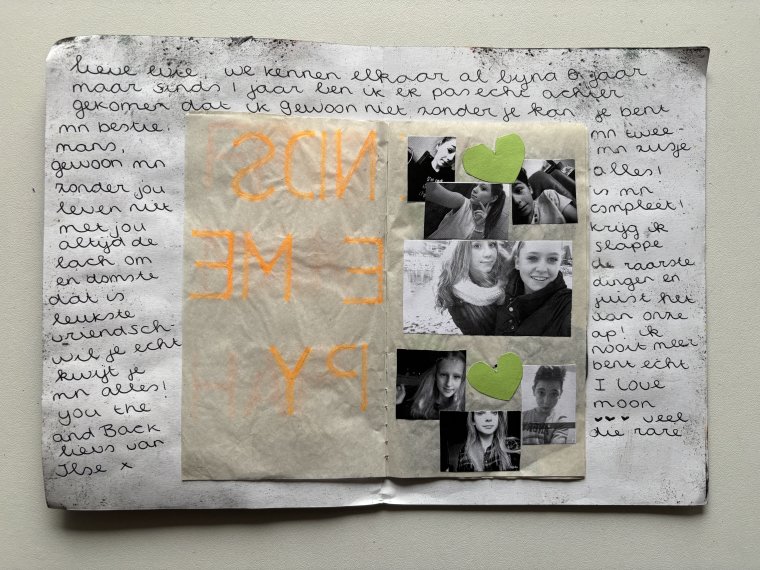 lieve we kennen elkaar al byna 6 jaar
maar sinds 1 jaar ben ik ek pas echt achter
gekomen dat ik gewoon niet zonder je kan je bent
mn bestie, mn twee-
mans, mn zusje
gewoon mn alles!
zonder jou is mn
leven niet compleet!
met jou krijg ik
altijd de slappe
lach om de raarste
en domste dingen en
dat is juist het
leukste van onze
vriendsch- ap! ik
wil je echt nooit meer
kwijt je bent echt
mn alles! I love
you the moon
and Back ♥♥♥ veel
liefs van die rare
Ilse x
NDS
E ME
PY